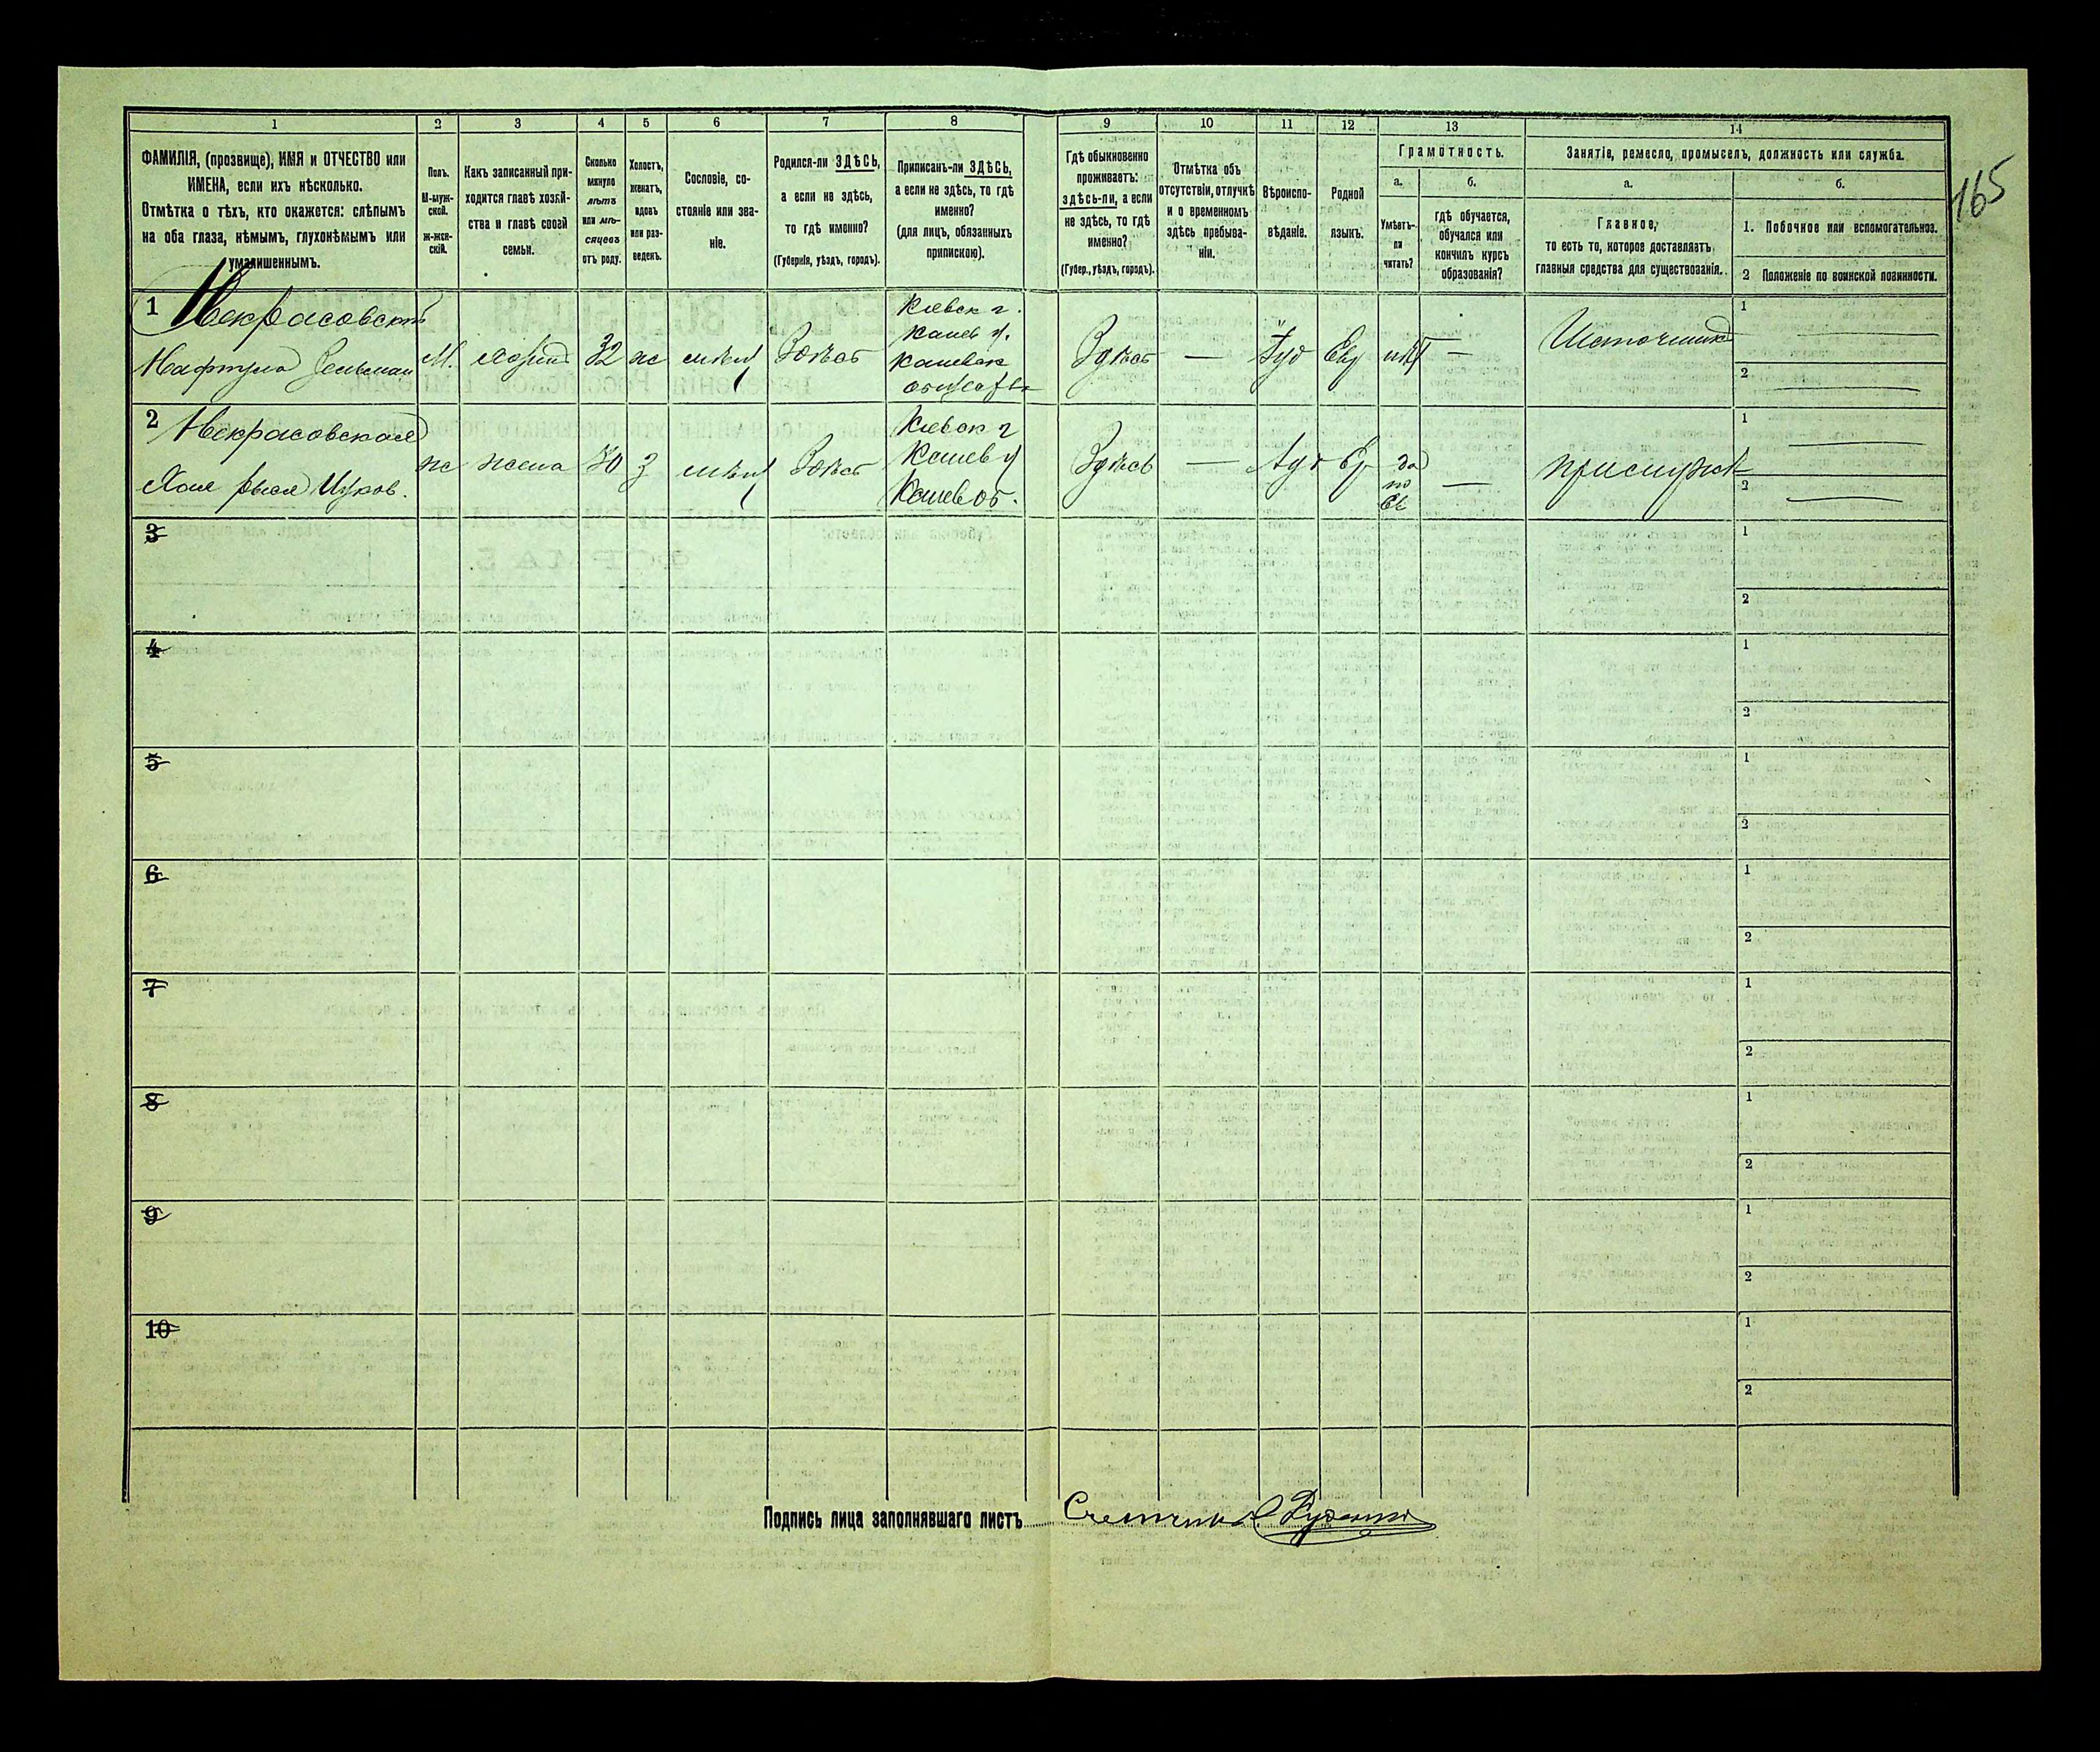 165
1 2 3 4 5 6 7 8 9 10 11 12 13 14
ФАМИЛІЯ, (прозвище), ИМЯ и ОТЧЕСТВО или
ИМЕНА, если ихъ нѣсколько.
Отмѣтка о тѣхъ, кто окажется: слѣпымъ
на оба глаза, нѣмымъ, глухонѣмымъ или
умалишеннымъ.
Полъ.
М-муж-
ской.
ж-жен-
скій.
Какъ записанный при-
ходится главѣ хозяй-
ства и главѣ своей
семьи.
Сколько
минуло
лѣтъ
или мѣ-
сяцевъ
отъ роду.
Холостъ,
женатъ,
вдовъ
или раз-
веденъ.
Сословіе, со-
стояніе или зва-
ніе.
Родился-ли ЗДѢСЬ,
а если не здѣсь,
то гдѣ именно?
(Губернія, уѣздъ, городъ).
Приписанъ-ли ЗДѢСЬ,
а если не здѣсь, то гдѣ
именно?
(для лицъ, обязанныхъ
припискою).
Гдѣ обыкновенно
проживаетъ:
здѣсь-ли, а если
не здѣсь, то гдѣ
именно?
(Губер., уѣздъ, городъ).
Отмѣтка объ
отсутствіи, отлучкѣ
и о временномъ
здѣсь пребыва-
ніи.
Вѣроиспо-
вѣданіе.
Родной
языкъ.
Грамотность.
а.
Умѣетъ-
ли
читать?
б.
гдѣ обучается,
обучался или
кончилъ курсъ
образованія?
Занятіе, ремесло, промыселъ, должность или служба.
а.
Главное,
то есть то, которое доставляетъ
главныя средства для существованія.
б.
1. Побочное или вспомогательное.
2 Положеніе по воинской повинности.
1 Некрасовскій
Нафтула Зельман М. хозяин 32 ж Здѣсь
Кіевск г.
Канев у.
Здѣсь — Іуд Евр нѣт —
1
2
2 Некрасовская
Хая ж жена 30 з Здѣсь
Кіевск г
Канев у
Канев об.
Здѣсь — Іуд Ев да
по
Ев
—
1
2
3 1
2
4 1
2
5 1
2
6 1
2
7 1
2
8 1
2
9 1
2
10 1
2
Подпись лица заполнявшаго листъ Счетчикъ